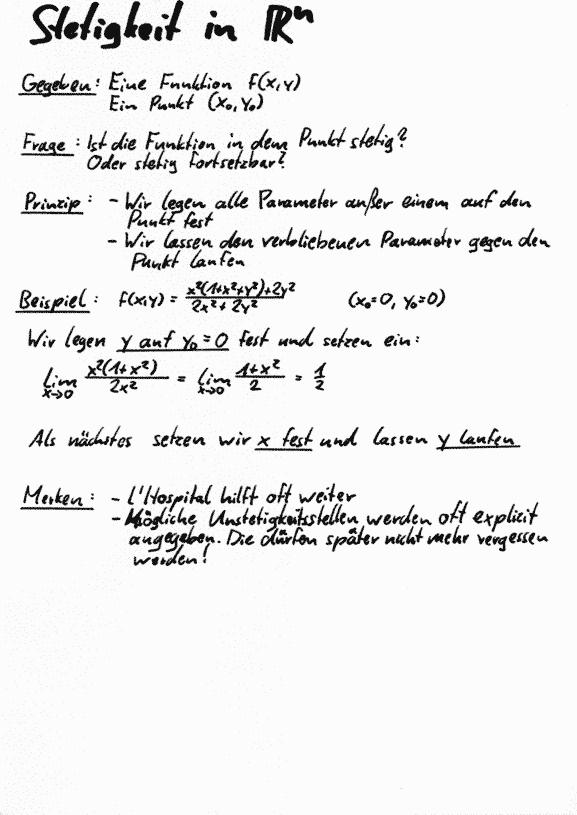 Stetigkeit in ℝⁿ
Gegeben: Eine Funktion f(x,y)
Ein Punkt (x₀,y₀)
Frage: Ist die Funktion in dem Punkt stetig?
Oder stetig fortsetzbar?
Prinzip: - Wir legen alle Parameter außer einem auf den
Punkt fest
- Wir lassen den verbliebenen Parameter gegen den
Punkt laufen
Beispiel: f(x,y) = (x²(1+x²+y²)+2y²)/(2x²+2y²) (x₀=0, y₀=0)
Wir legen y auf y₀=0 fest und setzen ein:
lim x→0 (x²(1+x²))/(2x²) = lim x→0 (1+x²)/2 = 1/2
Als nächstes setzen wir x fest und lassen y laufen
Merken: - L'Hospital hilft oft weiter
- Mögliche Unstetigkeitsstellen werden oft explizit
angegeben. Die dürfen später nicht mehr vergessen
werden!